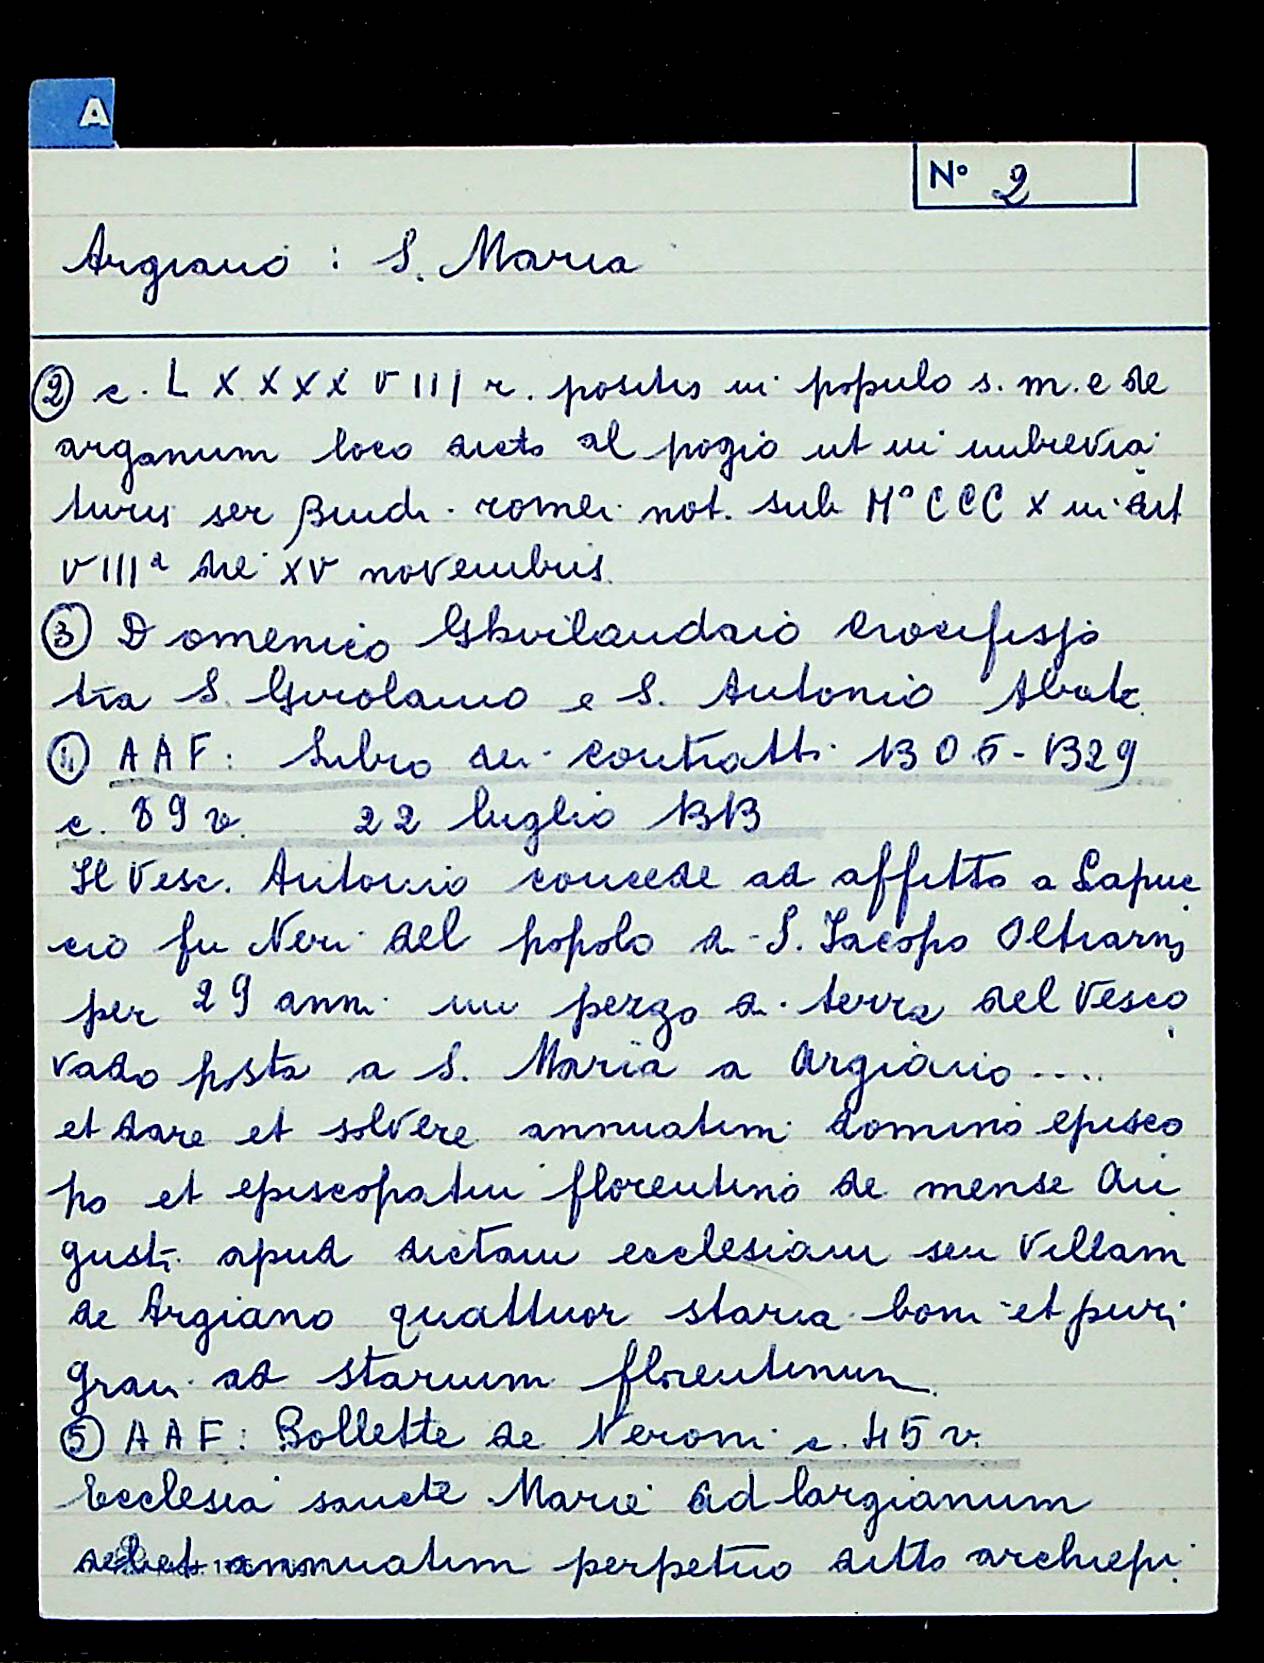 A
N° 2
Argiano : S. Maria
② c. LXXXXVIII r. positis in populo s. m. e de
arganum loco dicto al pogio ut in imbrevia
turis ser Bindi romei not. sub M° CCC X in dict
VIIIª die XV novembris.
③ Domenico Ghirilandaio Crocifisso
tra S. Girolamo e S. Antonio Abate
④ AAF: Libro dei contratti 1305-1329
c. 89 v. 22 luglio 1313
Il Vesc. Antonio concede ad affitto a Lapuc
cio fu Neri del popolo di S. Iacopo Oltrarno
per 29 anni un pezzo di terra del Vesco
vado posta a S. Maria a Argiano ....
et dare et solvere annuatim domino episco
po et episcopatui florentino de mense Au
gusti apud dictam ecclesiam seu Villam
de Argiano quattuor staria boni et puri
grani ad starium florentinum.
⑤ AAF: Bollette de Neroni c. 45 v.
Ecclesia sancte Marie ad largianum
debet annuatim perpetuo ditto archiepi